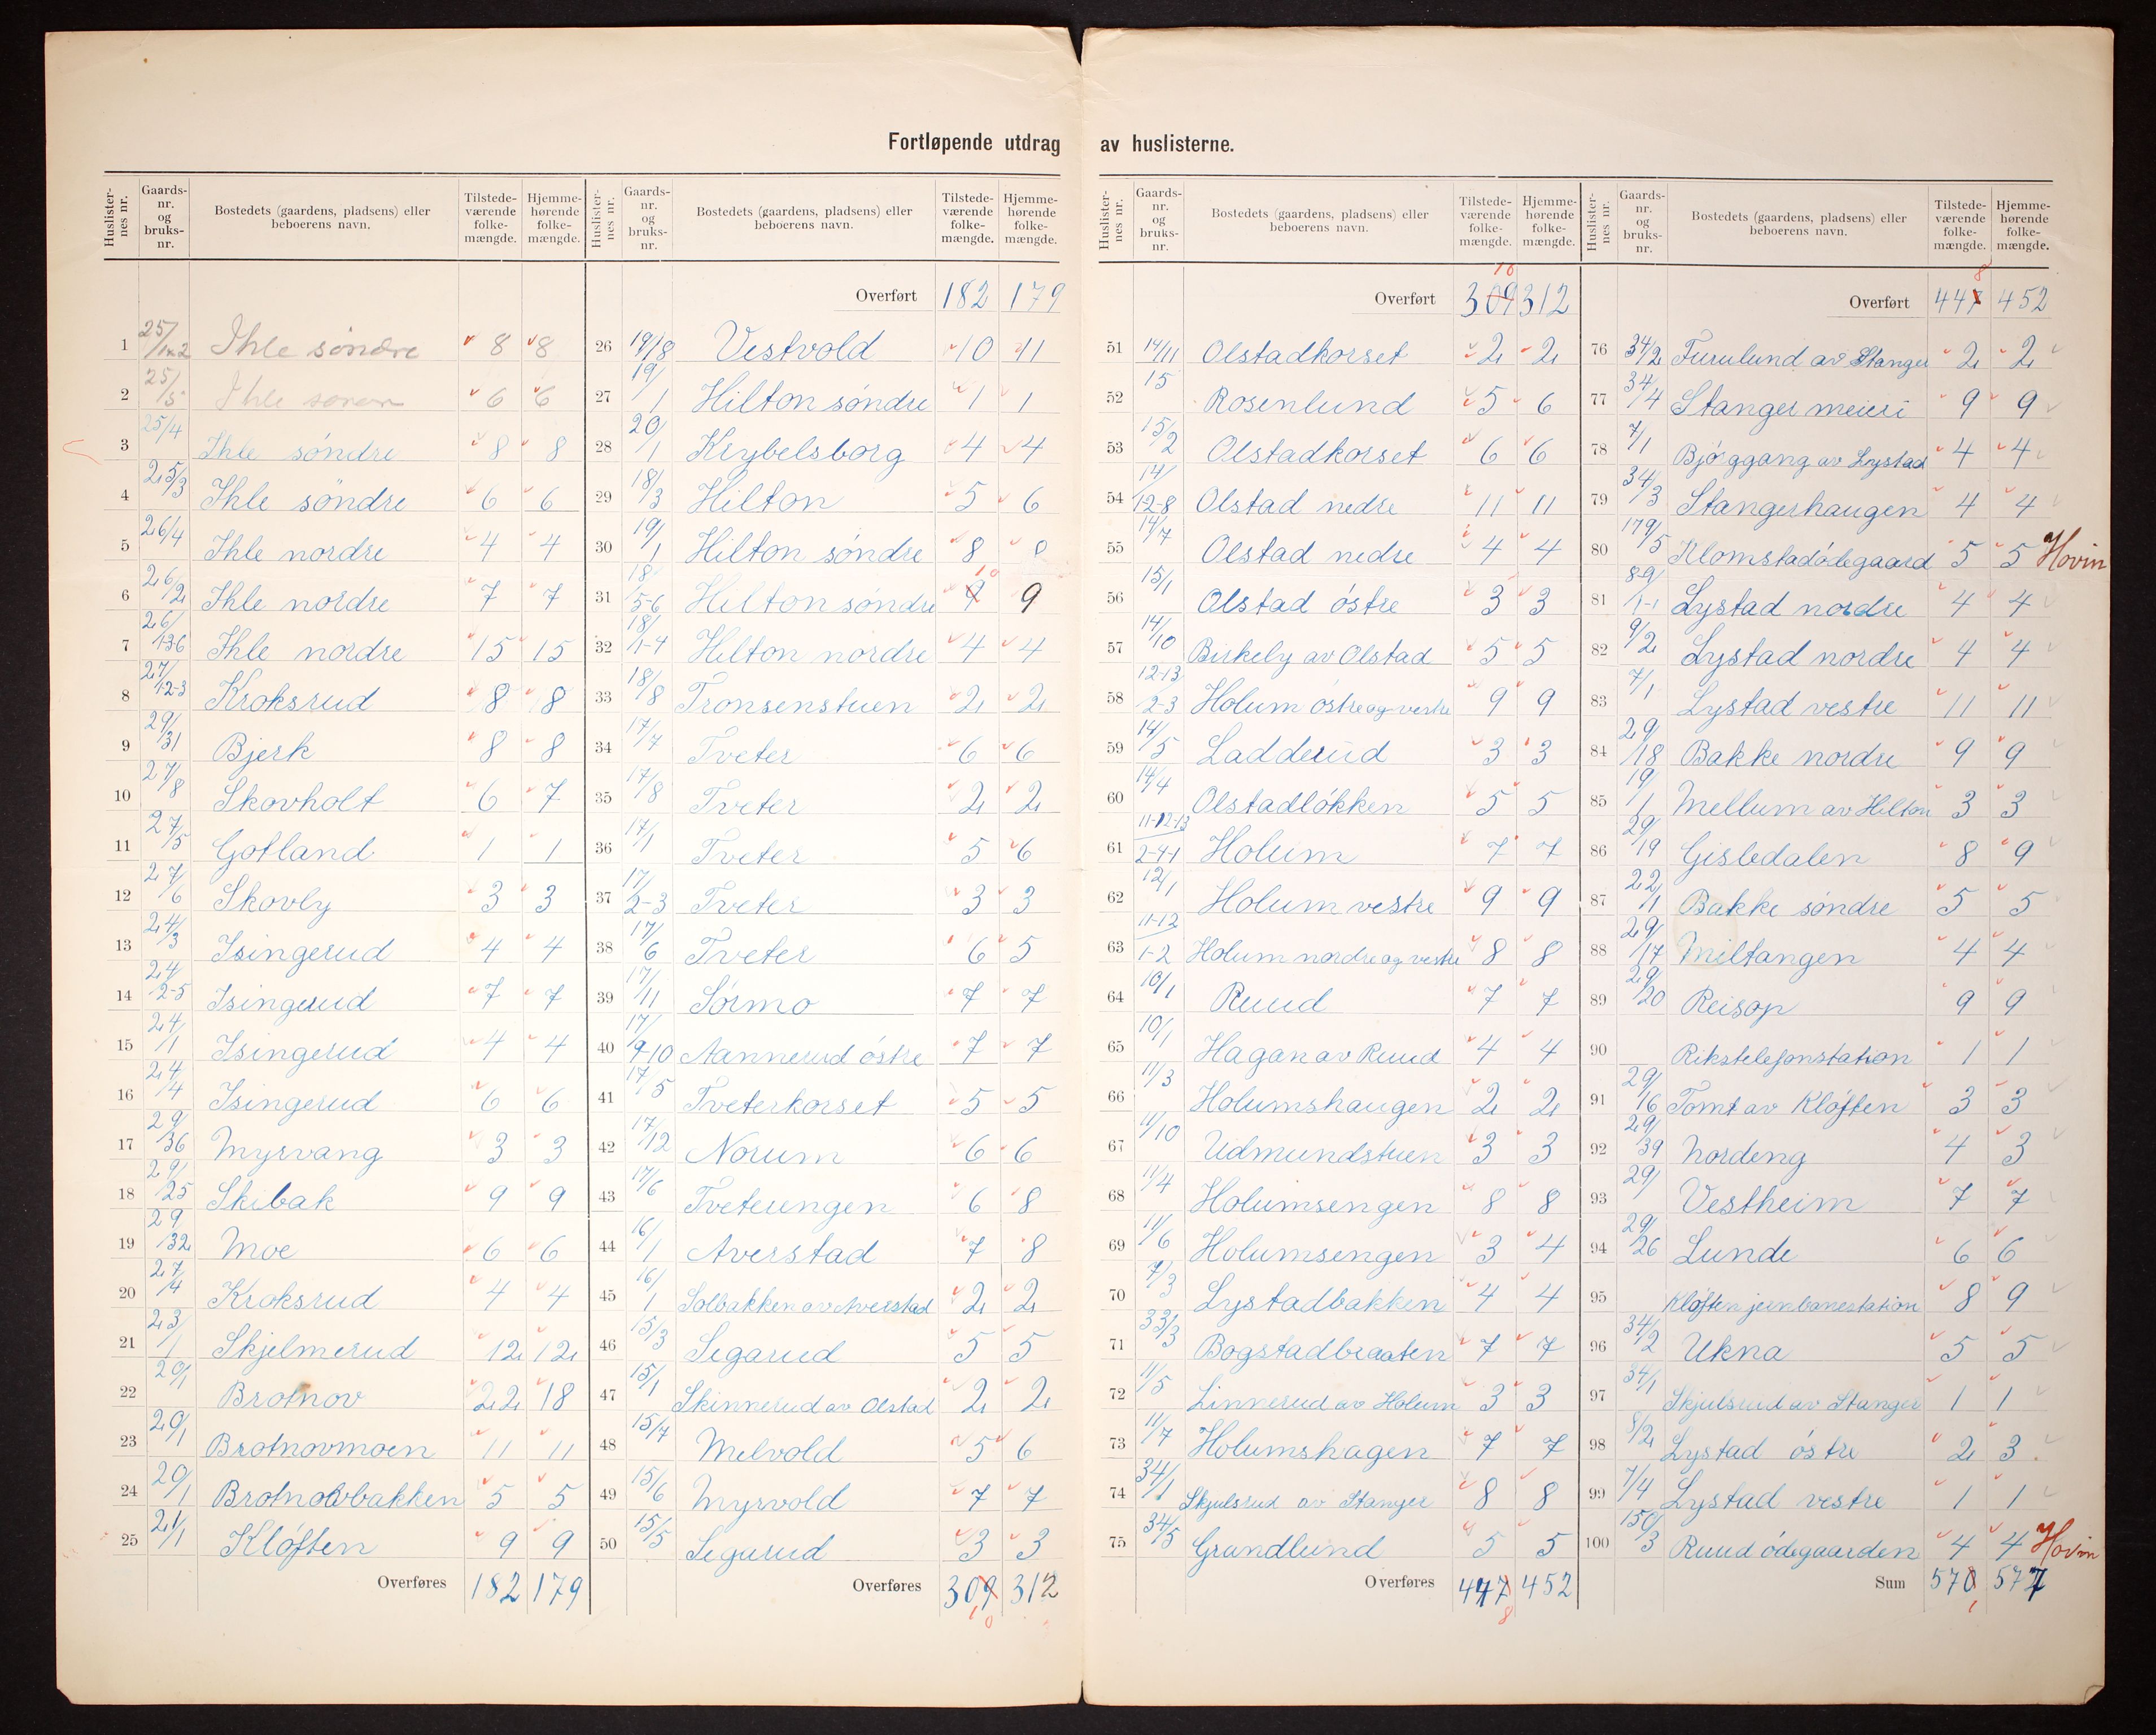 Fortløpende utdrag av huslisterne.
Huslisternes nr. Gaards-nr. og bruks-nr. Bostedets (gaardens, pladsens) eller beboerens navn. Tilstede-værende folke-mængde. Hjemme-hørende folke-mængde.
1 25/1x2 Ihle søndre 8 8
2 25/5 Ihle 6 6
3 25/4 Ihle søndre 8 8
4 25/3 Ihle søndre 6 6
5 26/4 Ihle nordre 4 4
6 26/2 Ihle nordre 7 7
7 26/1-3-6 Ihle nordre 15 15
8 27/1-2-3 Kroksrud 8 8
9 29/31 Bjerk 8 8
10 27/8 Skovholt 6 7
11 27/5 Gotland 1 1
12 27/6 Skovly 3 3
13 24/3 Isingerud 4 4
14 24/2-5 Isingerud 7 7
15 24/1 Isingerud 4 4
16 24/4 Isingerud 6 6
17 29/36 Myrvang 3 3
18 29/25 Skibak 9 9
19 29/32 Moe 6 6
20 27/4 Kroksrud 4 4
21 23/1 Skjelmerud 12 12
22 20/1 Brotnov 22 18
23 20/1 Brotnovmoen 11 11
24 20/1 Brotnovbakken 5 5
25 21/1 Kløften 9 9
Overføres 182 179
Huslisternes nr. Gaards-nr. og bruks-nr. Bostedets (gaardens, pladsens) eller beboerens navn. Tilstede-værende folke-mængde. Hjemme-hørende folke-mængde.
Overført 182 179
26 19/8 Vestvold 10 11
27 19/1 Hilton søndre 1 1
28 20/1 Krybelsborg 4 4
29 18/3 Hilton 5 6
30 19/1 Hilton søndre 8 8
31 18/5-6 Hilton søndre 10 9
32 18/1-4 Hilton nordre 4 4
33 18/8 Tronsenstuen 2 2
34 17/7 Tveter 6 6
35 17/8 Tveter 2 2
36 17/1 Tveter 5 6
37 17/2-3 Tveter 3 3
38 17/6 Tveter 6 5
39 17/11 Sørmo 7 7
40 17/9-10 Aannerud østre 7 7
41 17/5 Tveterkorset 5 5
42 17/12 Norum 6 6
43 17/6 Tveterengen 6 8
44 16/1 Averstad 7 8
45 16/1 Solbakken av Averstad 2 2
46 15/3 Segarud 5 5
47 15/1 Skinnerud av Olstad 2 2
48 15/4 Melvold 5 6
49 15/6 Myrvold 7 7
50 15/5 Segarud 3 3
Overføres 309 312
10
Huslisternes nr. Gaards-nr. og bruks-nr. Bostedets (gaardens, pladsens) eller beboerens navn. Tilstede-værende folke-mængde. Hjemme-hørende folke-mængde.
10
Overført 309 312
51 14/11 Olstadkorset 2 2
52 15 Rosenlund 5 6
53 15/2 Olstadkorset 6 6
54 14/12-8 Olstad nedre 11 11
55 14/7 Olstad nedre 4 4
56 15/1 Olstad østre 3 3
57 14/10 Birkely av Olstad 5 5
58 12-13/2-3 Holum østre og vestre 9 9
59 14/5 Ladderud 3 3
60 14/4 Olstadløkken 5 5
61 11-12-13/2-4-1 Holum 7 7
62 12/1 Holum vestre 9 9
63 11-12/1-2 Holum nordre og vestre 8 8
64 10/1 Ruud 7 7
65 10/1 Hagan av Ruud 4 4
66 11/3 Holumshaugen 2 2
67 11/10 Udmundstuen 3 3
68 11/4 Holumsengen 8 8
69 11/6 Holumsengen 3 4
70 7/3 Lystadbakken 4 4
71 33/3 Bogstadbraaten 7 7
72 11/5 Linnerud av Holum 3 3
73 11/7 Holumshagen 7 7
74 34/1 Skjulsrud av Stanger 8 8
75 34/5 Grandlund 5 5
Overføres 447 452
8
Huslisternes nr. Gaards-nr. og bruks-nr. Bostedets (gaardens, pladsens) eller beboerens navn. Tilstede-værende folke-mængde. Hjemme-hørende folke-mængde.
8
Overført 447 452
76 34/2 Furulund av Stanger 2 2
77 34/4 Stanger meieri 9 9
78 7/1 Bjøggang av Lystad 4 4
79 34/3 Stangerhaugen 4 4
80 179/5 Klomstadødegaard 5 5 Hovin
81 8-9/1-1 Lystad nordre 4 4
82 9/2 Lystad nordre 4 4
83 7/1 Lystad vestre 11 11
84 29/18 Bakke nordre 9 9
85 19/1 Mellum av Hilton 3 3
86 29/19 Gisledalen 8 9
87 22/1 Bakke søndre 5 5
88 29/17 Miltangen 4 4
89 29/20 Reisop 9 9
90 Rikstelefonstation 1 1
91 29/16 Tomt av Kløften 3 3
92 29/39 Nordeng 4 3
93 29/ Vestheim 7 7
94 29/26 Lunde 6 6
95 Kløften jernbanestation 8 9
96 34/2 Ukna 5 5
97 34/1 Skjulsrud av Stanger 1 1
98 8/2 Lystad østre 2 3
99 7/4 Lystad vestre 1 1
100 150/3 Ruud ødegaarden 4 4 Hovin
Sum 570 577
1